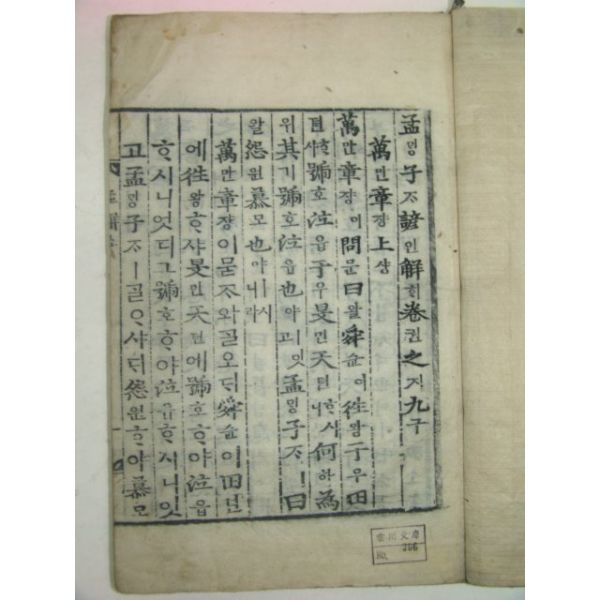 孟밍子ᄌᆞ諺언解ᄒᆡ卷권之지九구
萬만章쟝上샹
萬만章쟝이問문曰왈舜슌이往왕于우田
뎐ᄒᆞ샤號호泣읍于우旻민天텬ᄒᆞ시니何하爲
위其기號호泣읍也야ㅣ잇고孟ᄆᆡᆼ子ᄌᆞㅣ曰
왈怨원慕모也야ㅣ시니라
萬만章쟝이묻ᄌᆞ와ᄀᆞᆯ오ᄃᆡ舜슌이田뎐
에往왕ᄒᆞ샤旻민天텬에號호ᄒᆞ야泣읍
ᄒᆞ시니엇디그號호ᄒᆞ야泣읍ᄒᆞ시니잇
고孟ᄆᆡᆼ子ᄌᆞㅣᄀᆞᆯᄋᆞ샤ᄃᆡ怨원ᄒᆞ야慕모
NO. 396